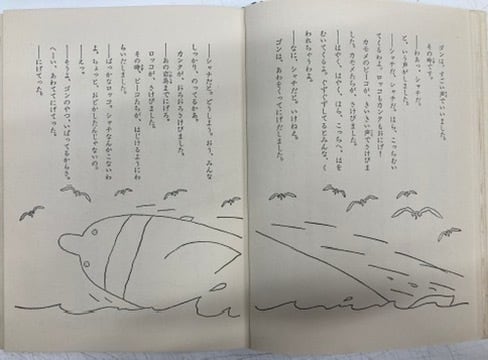 ゴンは、すごい声でいいました。
その時です。
――わあっ。
と、いう声がしました。
――シャチだ、シャチだ。ほら、こっちむい
てくるわよ。ロッコもカンクもおにげ！
カモメのピーコが、きいきい声でさけびま
した。カモメたちが、
――はやく、はやく。ほら、こっちへ、はを
むいてくるよ。ぐずぐずしてるとみんな、く
われちゃうわよ。
――なに、シャチだと。いけねえ。
ゴンは、あわをくってにげだしました。
――シャチだと。どうしよう。おう、みんな
しっかり、のってるかあ。
カンクが、おろおろさけびました。
――あの岩島までにげろ。
ロッコが、さけびました。
その時、ピーコたちが、はじけるようにわ
らいだしました。
――ばっかなロッコ。シャチなんかこないわ
よ。ちょっと、おどかしたんじゃないの。
――えっ。
――そうよ。ゴンのやつ、いばってるからさ。
――へえ、あわててにげてった。
――にげてった。